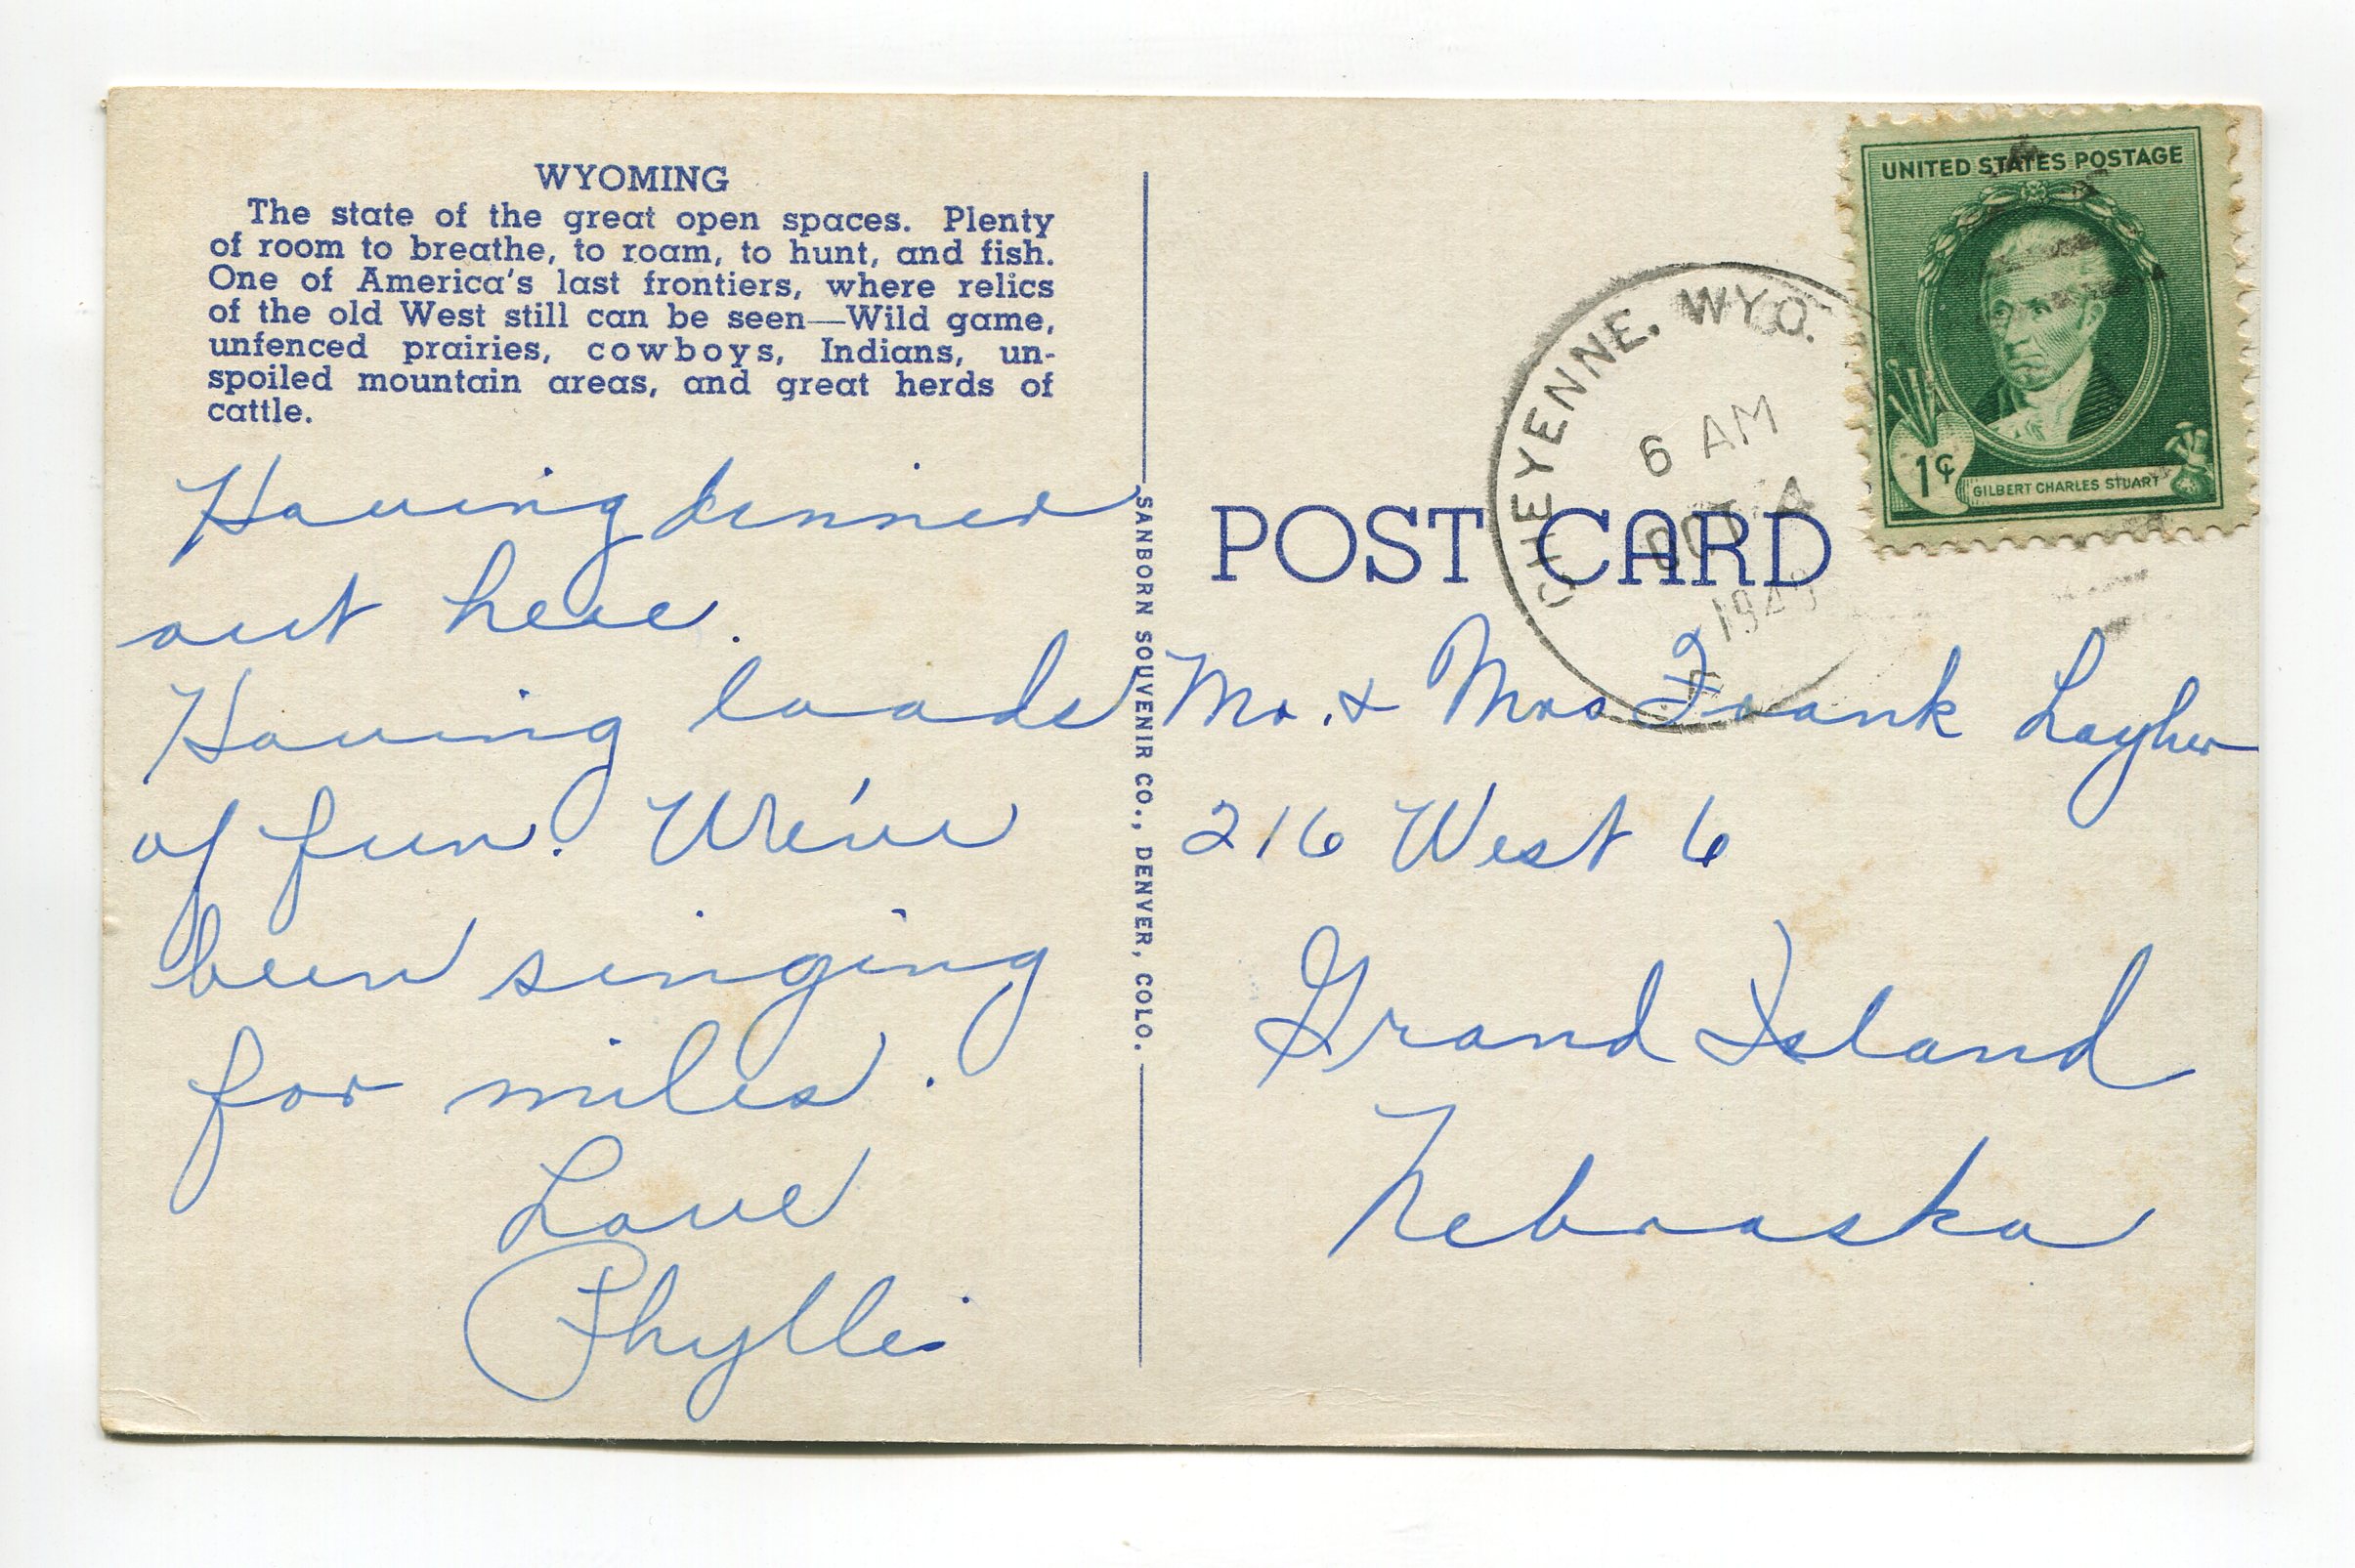 WYOMING
The state of the great open spaces. Plenty
of room to breathe, to roam, to hunt, and fish.
One of America's last frontiers, where relics
of the old West still can be seen—Wild game,
unfenced prairies, cowboys, Indians, un-
spoiled mountain areas, and great herds of
cattle.
Having dinner
out here.
Having loads
of fun. We've
been singing
for miles.
Love
Phyllis
SANBORN SOUVENIR CO., DENVER, COLO.
UNITED STATES POSTAGE
1¢
GILBERT CHARLES STUART
CHEYENNE, WYO.
6 AM
OCT 4
POST CARD
Mr. & Mrs Frank Layher
216 West 6
Grand Island
Nebraska